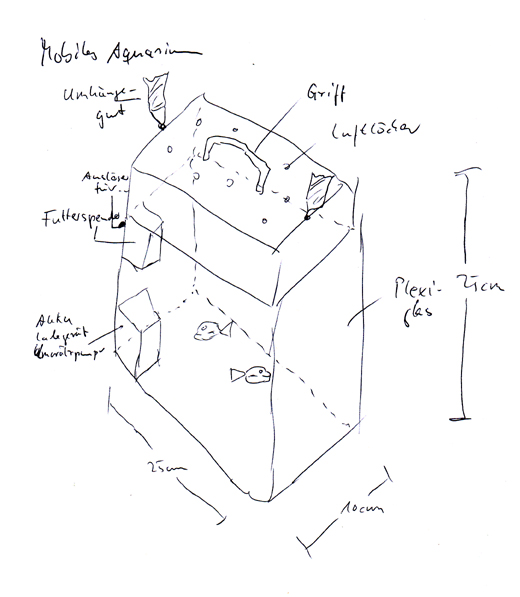 Mobiles Aquarium
Umhänge-
gurt
Griff
Luftlöcher
Auslöser
für
Futterspender
Plexi-
glas
25cm
Akku
Ladegerät
25cm
10cm